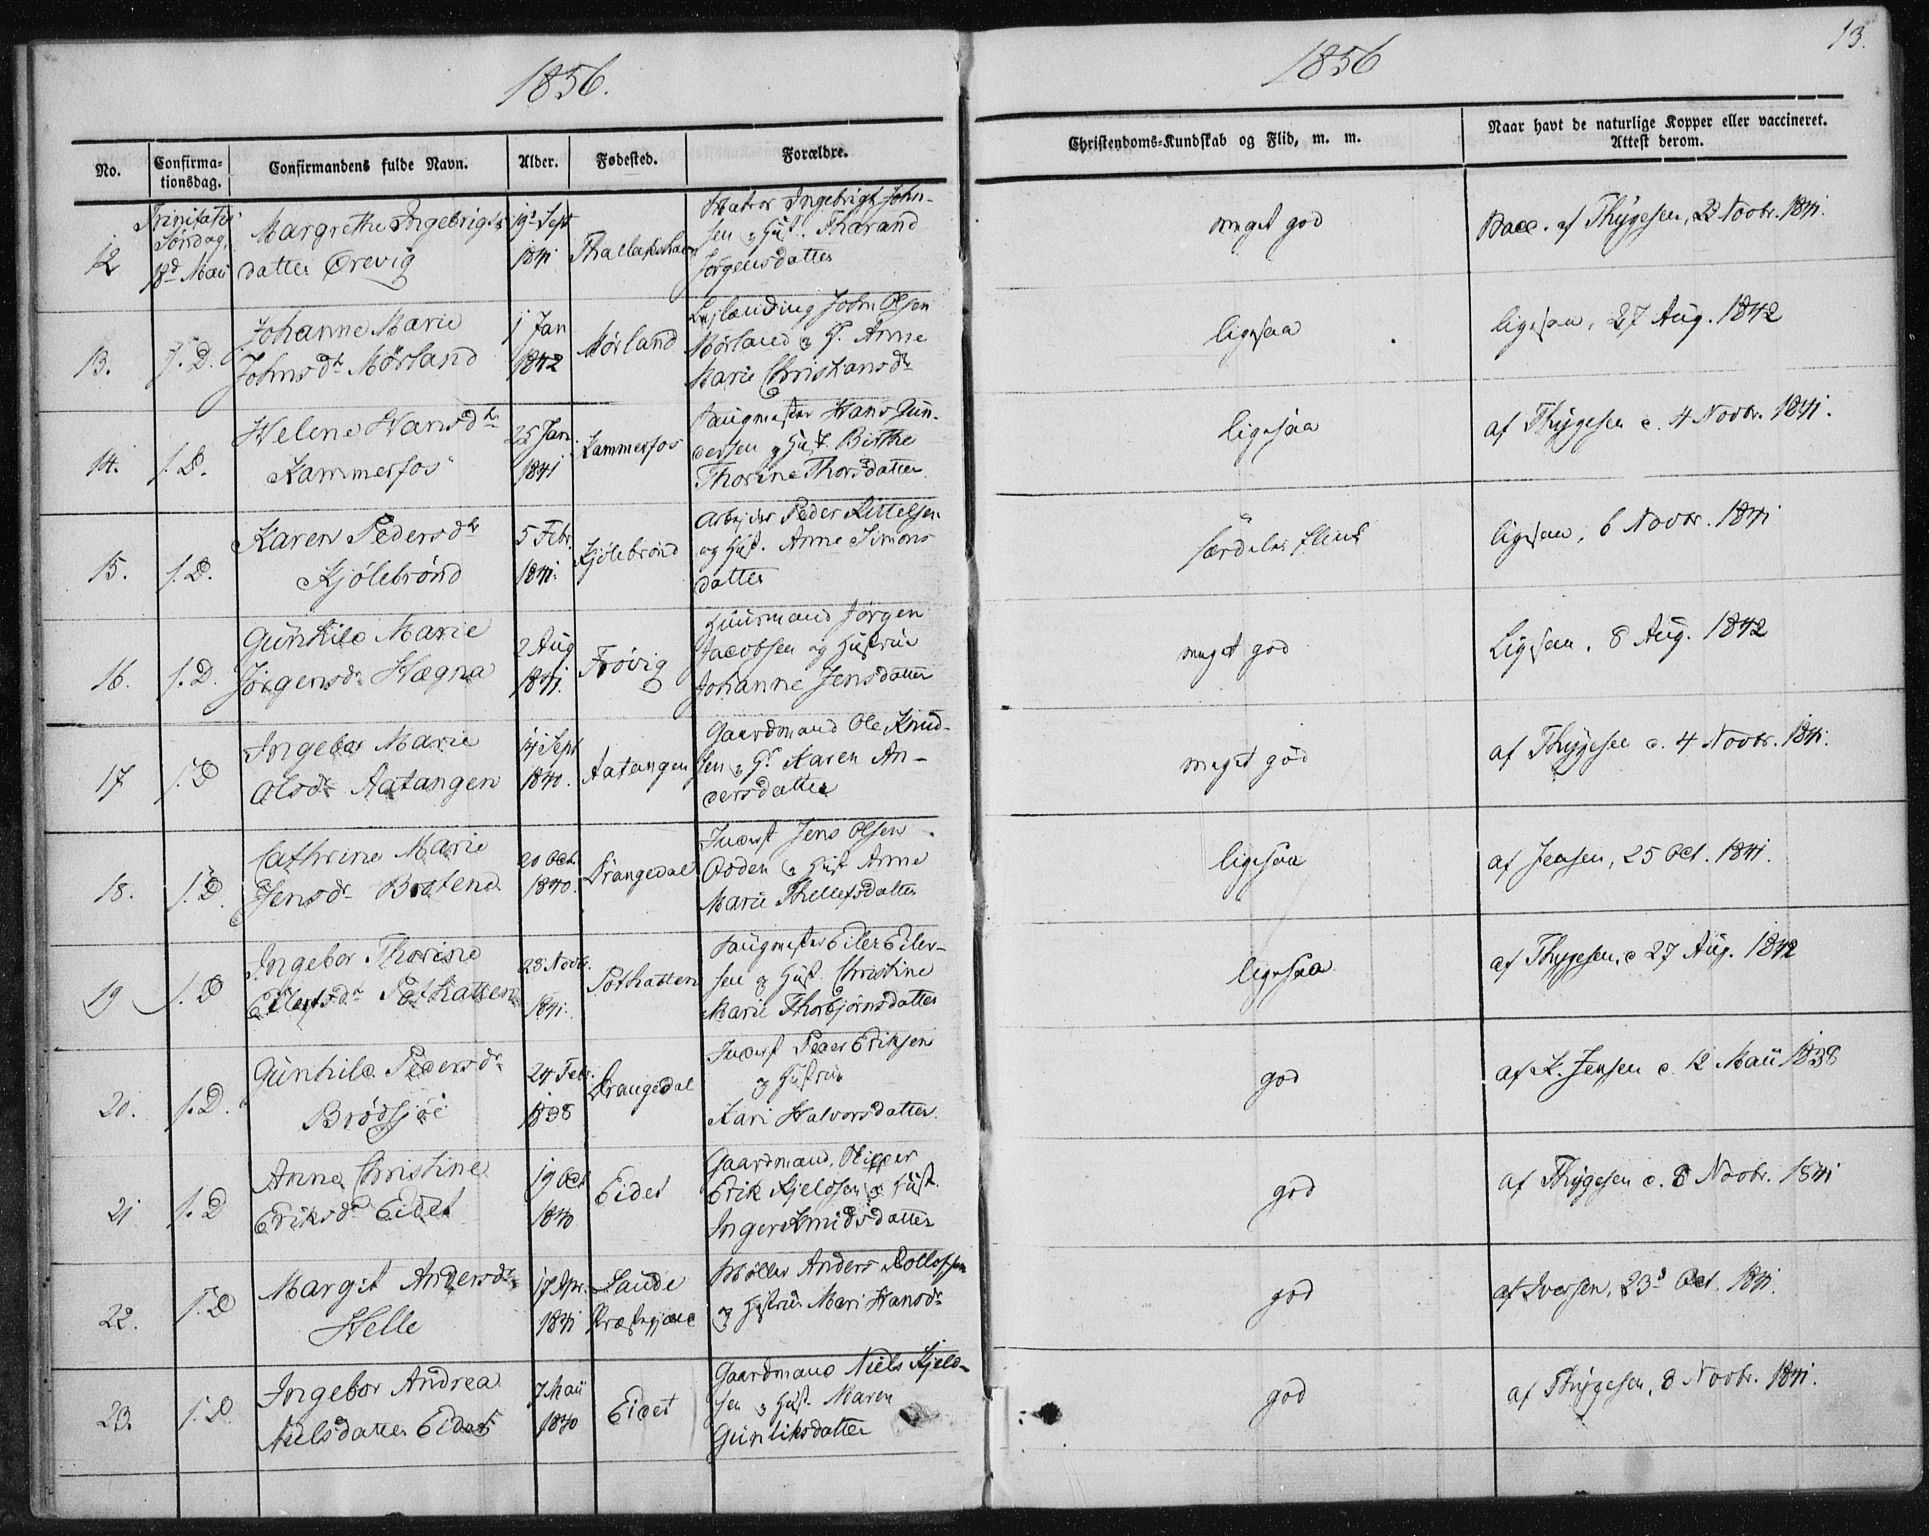 1856.
1856
13.
No.
Confirma-
tionsdag.
Confirmandens fulde Navn.
Alder.
Fødested.
Forældre.
Christendoms-Kundskab og Flid, m. m.
Naar havt de naturlige Kopper eller vaccineret.
Attest derom.
12
Trinitatis
Søndag,
18d Mai
Margrethe Ingebrigts
datter Ørevig
19d Sept
1841
Matros Ingebrigt John-
sen og Hust. Tharand
Jørgensdatter
meget god
Vacc. af Thygesen, 22 Novbr. 1841.
13.
s. D.
Johanne Marie
Johnsdr Mørland
1 Jan
1842
Mørland
Leilænding John Olsen
Mørland og H. Anne
Marie Christiansdr
ligesaa
ligesaa, 27 Aug. 1842
14.
s. D.
Helene Hansdr
Kammerfos
25 Jan.
1841
Kammerfos
Saugmester Hans Gun-
dersen og Hust. Birthe
Thorine Thorsdatter
ligesaa
af Thygesen d. 4 Novbr. 1841.
15.
s. D.
Karen Pedersdr
Kjølebrønd
5 Febr.
1841.
Kjølebrønd
Arbejder Peder Kittelsen
og Hust. Anne Simons
datter
særdeles flink
ligesaa, 6 Novbr. 1841
16.
s. D.
Gunhild Marie
Jørgensdr Hægna
2 Aug
1841.
Frøvig
Huusmand Jørgen
Jacobsen og Hustrue
Johanne Jensdatter
meget god
Ligesaa, 8 Aug. 1842
17
s. D
Ingebor Marie
Olsdr Aatangen
14 Sept
1840.
Aatangen
Gaardmand Ole Knud-
sen og H. Karen An-
dersdatter
meget god
af Thygesen d. 4 Novbr. 1841.
18.
s. D.
Cathrine Marie
Jensdr Bråtene
20 Oct.
1840.
Drangedal
Inderst Jens Olsen
Odden og Hust Anne
Marie Thellefsdatter
ligesaa
af Jensen, 25 Oct. 1841.
19
s. D
Ingebor Thorine
Eilertsdr Pothatten
28 Novbr.
1841.
Pothatten
Saugmester Eiler Eiler-
sen og Hust. Christine
Marie Thorbjørnsdatter
ligesaa
af Thygesen, d 27 Aug. 1842
20.
s. D.
Gunhild Pedersdr
Brødsjøe
24 Febr.
1838
Drangedal
Inderst Peder Eriksen
og Hustrue
Kari Halvorsdatter.
god
af K. Jensen d. 12 Mai 1838
21
s. D
Anne Christine
Eriksdr Eidet
19 Oct
1840
Eidet
Gaardmand, Skipper
Erik Kjeldsen og Hust.
Inger Knudsdatter
god
af Thygesen d. 8 Novbr. 1841
22.
s. D
Margit Andersdr
Helle
17 Apr.
1841
Saude
Præstegjæld
Møller Anders Rollefsen
og Hustrue Mari Hansdr
god
af Iversen, 23d Oct. 1841.
23.
s. D.
Ingebor Andrea
Nielsdatter Eidet
7 Mai
1840
Eidet
Gaardmand Niels Kjeld-
sen og Hust. Maren
Gunliksdatter
god
af Thygesen, 8 Novbr. 1841.